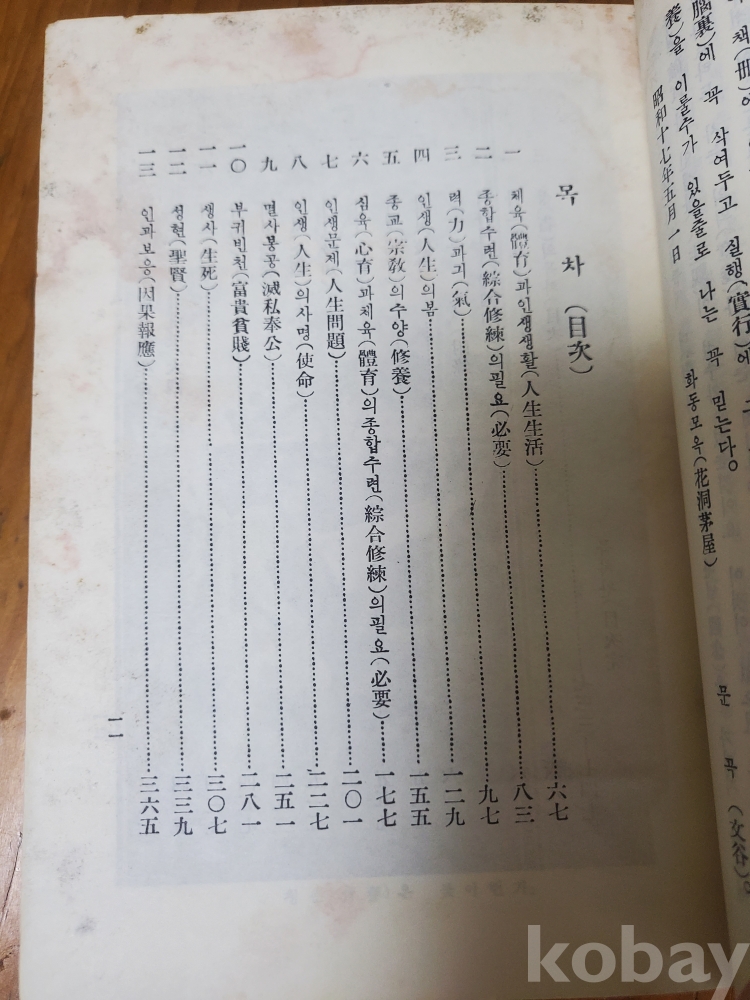 책(冊)에
腦裏)에 꼭 삭여두고 실행(實行)에
養)을 이룰수가 있을줄로 나는 꼭 믿는다。
昭和十七年五月一日
화동모옥(花洞茅屋)
문 곡 (文谷)
목 차 (目次)
一 체육(體育)과인생생활(人生生活)……六七
二 종합수련(綜合修練)의필요(必要)……八三
三 력(力)과기(氣)……九七
四 인생(人生)의봄……一二九
五 종교(宗敎)의수양(修養)……一五五
六 심육(心育)과체육(體育)의종합수련(綜合修練)의필요(必要)……一七七
七 인생문제(人生問題)……二〇一
八 인생(人生)의사명(使命)……二二七
九 멸사봉공(滅私奉公)……二五一
一〇 부귀빈천(富貴貧賤)……二八一
一一 생사(生死)……三〇七
一二 성현(聖賢)……三三九
一三 인과보응(因果報應)……三六五
一一
kobay